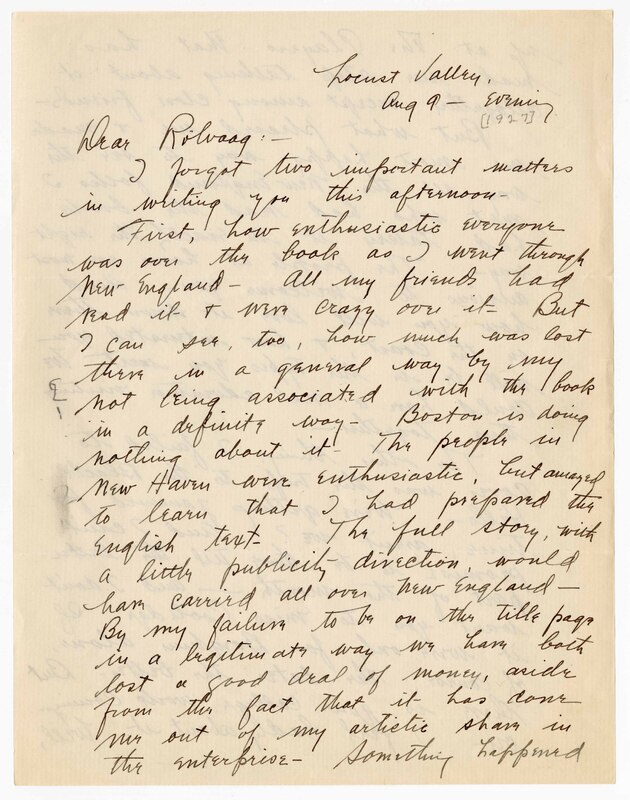 Locust Valley.
Aug 9 — Evening
[1927]
Dear Rölvaag: —
I forgot two important matters
in writing you this afternoon —
First, how enthusiastic everyone
was over the book as I went through
New England — All my friends had
read it & were crazy over it — But
I can see, too, how much was lost
there in a general way by my
not being associated with the book
in a definite way — Boston is doing
nothing about it — The people in
New Haven were enthusiastic, but amazed
to learn that I had prepared the
English text. The full story, with
a little publicity direction, would
have carried all over New England —
By my failure to be on the title page
in a legitimate way we have both
lost a good deal of money, aside
from the fact that it has done
me out of my artistic share in
the enterprise — Something happened